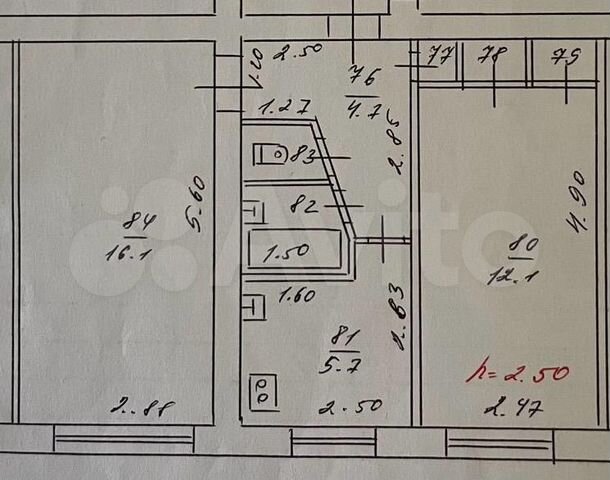 2.50
1.20
76
4.7
77
78
79
1.27
83
2.85
82
5.60
84
16.1
1.50
4.90
80
12.1
1.60
2.63
81
5.7
h=2.50
2.88
2.50
2.47
Avito